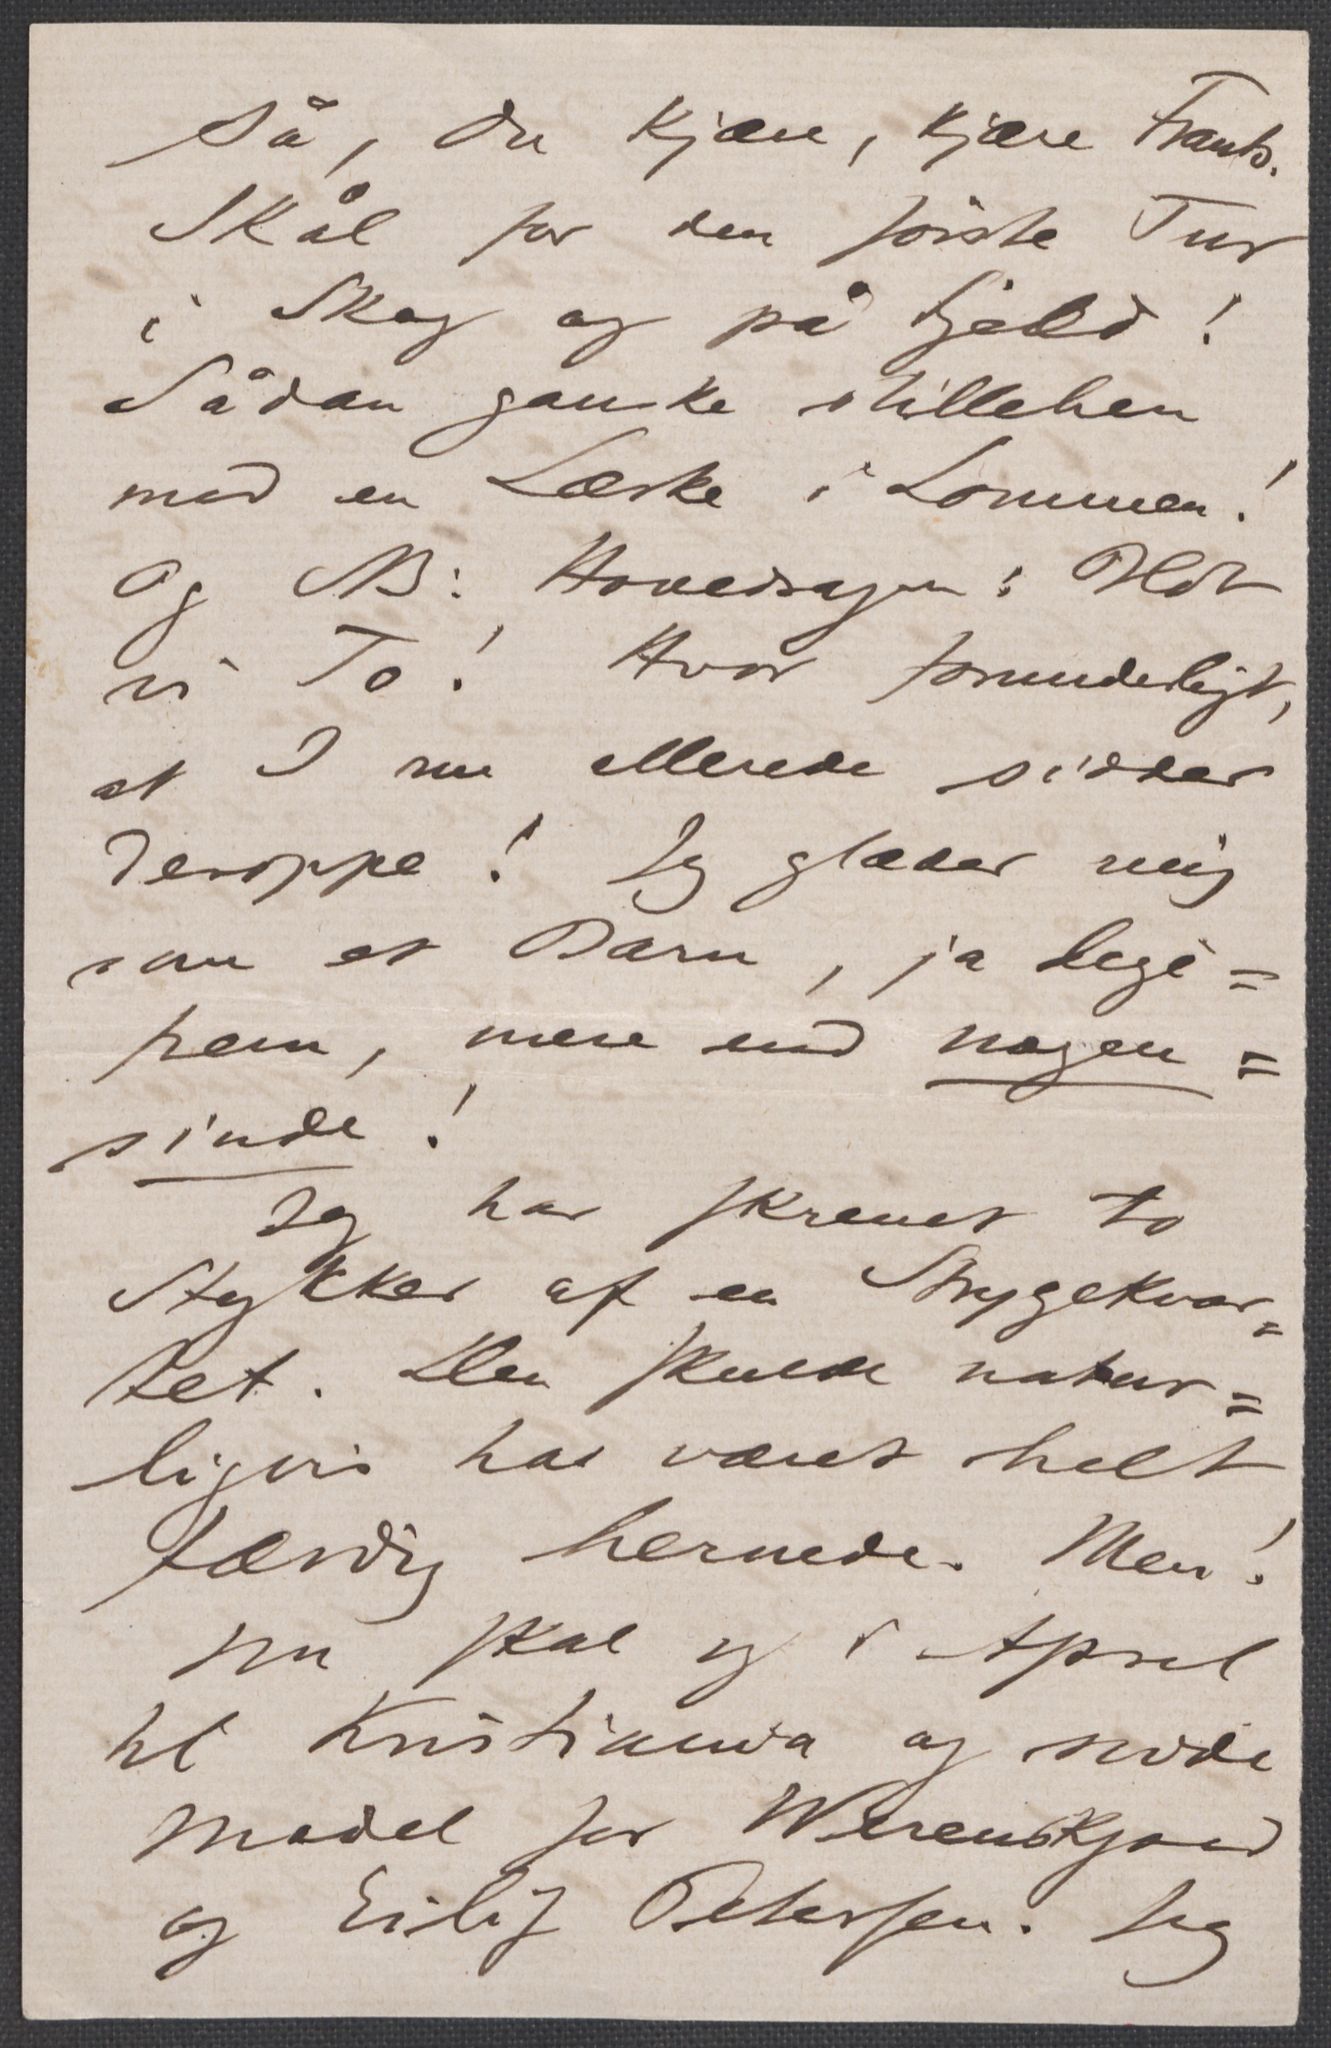 Så, du kjære, kjære Frants.
Skål for den første Tur
i Skog og på Fjeld!
Sådan ganske stilleben
med en Lærke i Lommen!
Og NB: Hovedsagen: Blot
vi To! Hvor forunderligt,
at I nu allerede sidder
deroppe! Jeg glæder mig
som et Barn, ja legi=
frem, mere end nogen=
sinde!
Jeg har skrevet to
Stykker af en Strygekvar=
tet. Den skulde natur=
ligvis ha været helt
færdig hernede. Men!
Nu skal jeg i April
til Kristiania og sidde
Model for Werenskjold
og Eilif Petersen. Jeg